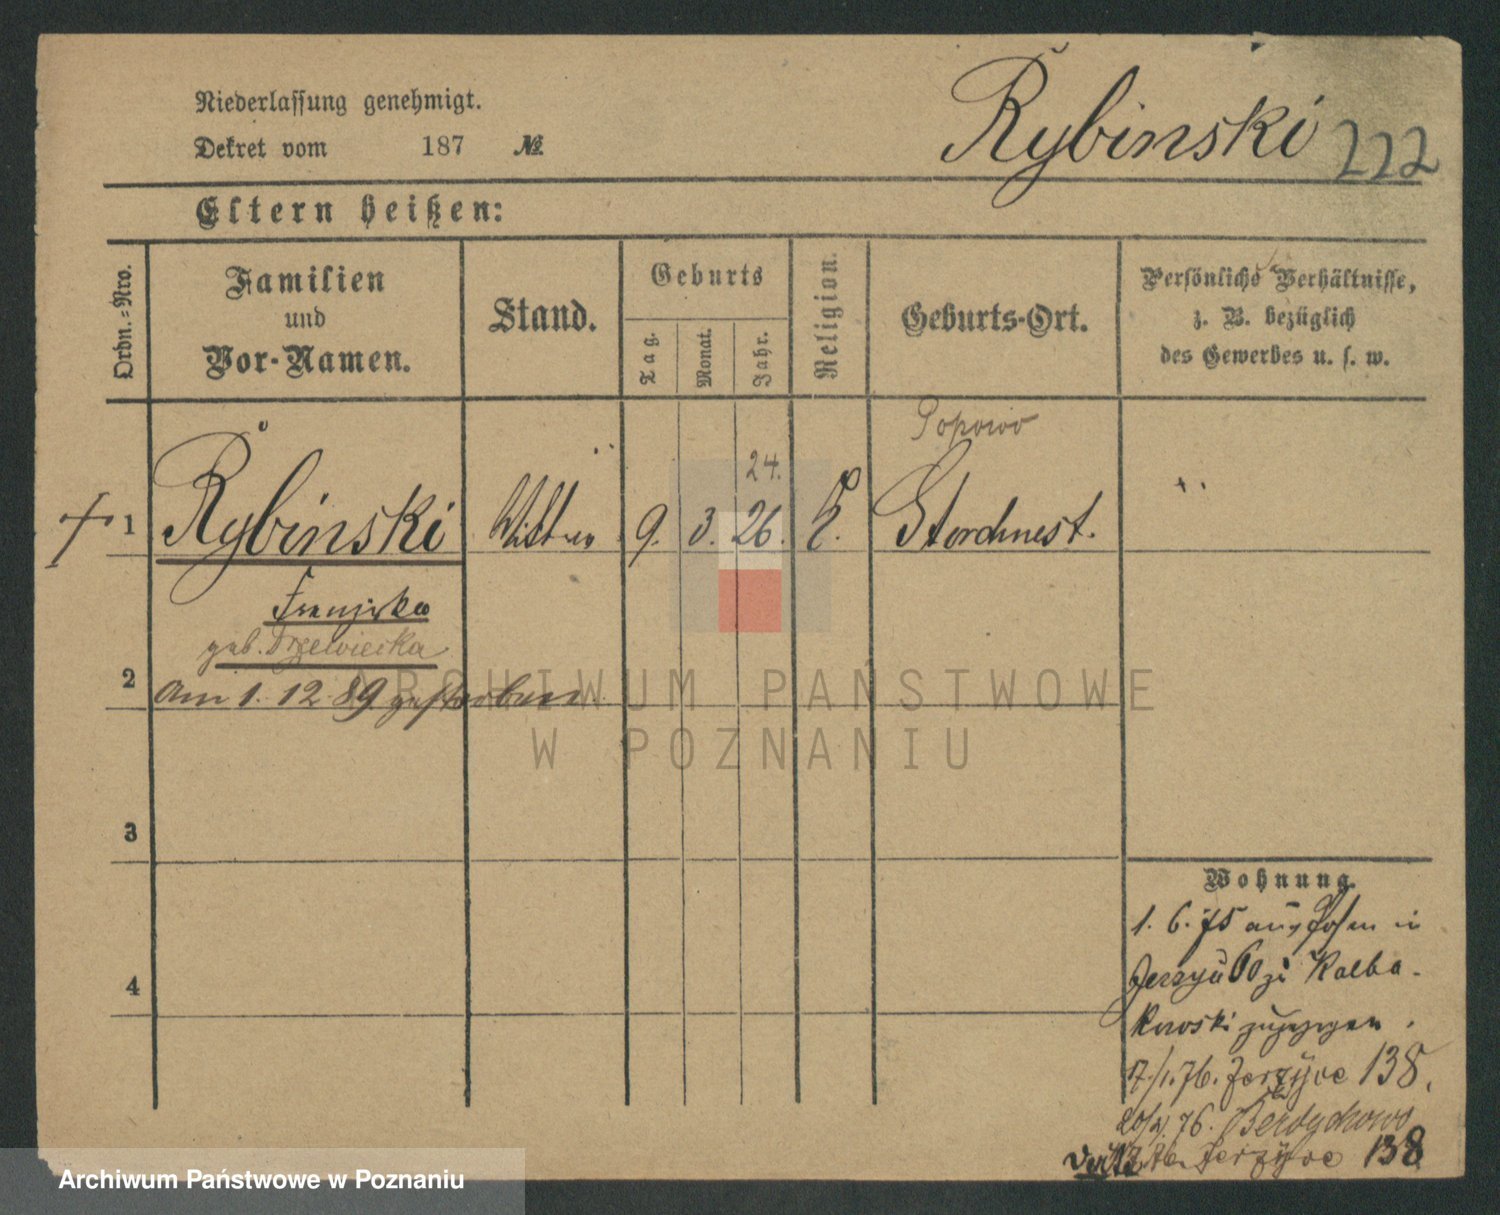 Niederlassung genehmigt.
Dekret vom 187 №
Rybinski 222
Eltern heißen:
Ordn.-Nro.
Familien
und
Vor-Namen.
Stand.
Geburts
Tag.
Monat.
Jahr.
Religion.
Geburts-Ort.
Persönliche Verhältnisse,
z. B. bezüglich
des Gewerbes u. s. w.
Popowo
24.
1 Rybinski 9. 3. 26. Storchnest.
Franziska
geb. Drzewiecka
2 am 1. 12. 89 gestorben.
ARCHIWUM PAŃSTWOWE
W POZNANIU
3
Wohnung.
1. 6. 75 aus Posen in
60 Kalba-
4
kowski zugezogen.
17./1. 76. Jerzyce 138.
76. Berdychowo
Jerzyce 138
Archiwum Państwowe w Poznaniu